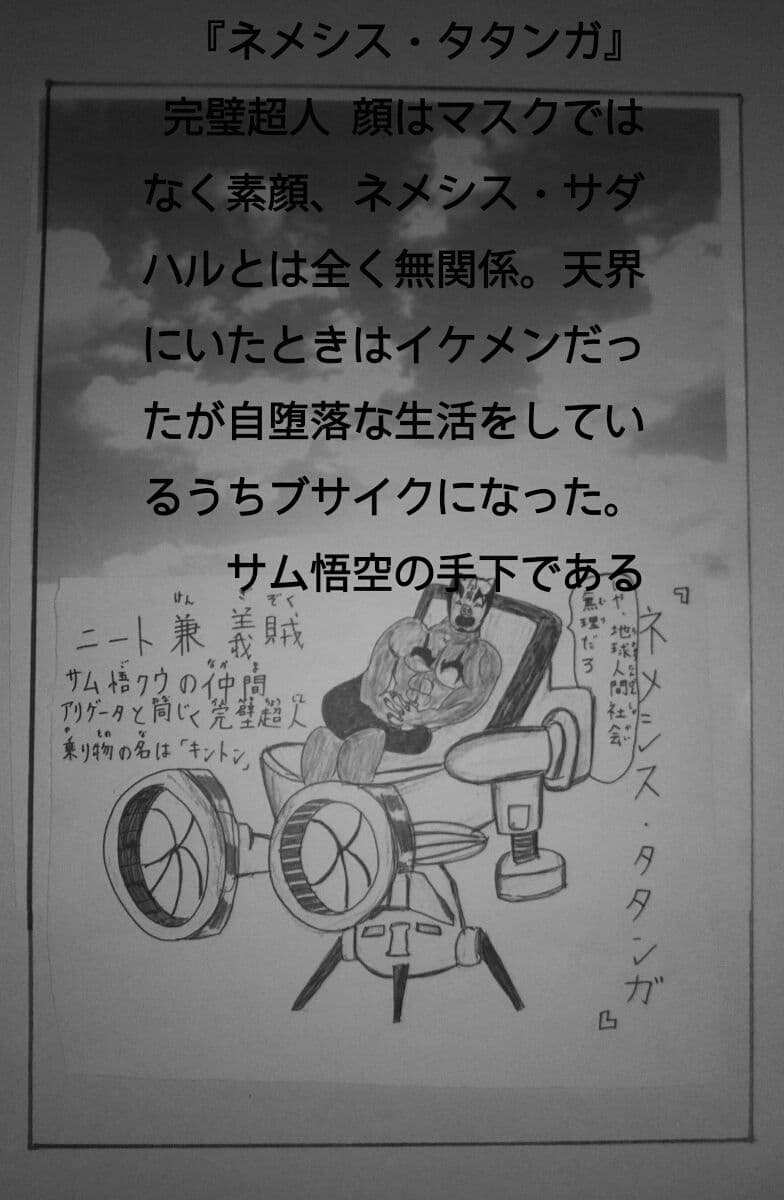 『ネメシス・タタンガ』
完璧超人 顔はマスクでは
なく素顔、ネメシス・サダ
ハルとは全く無関係。天界
にいたときはイケメンだっ
たが自堕落な生活をしてい
るうちブサイクになった。
サム悟空の手下である
『ネメシス・タタンガ』
や、地球人間社会
無理だろ
ニート兼義賊
サム悟クウの仲間
アリゲータと同じく完璧超人
乗り物の名は「キントン」